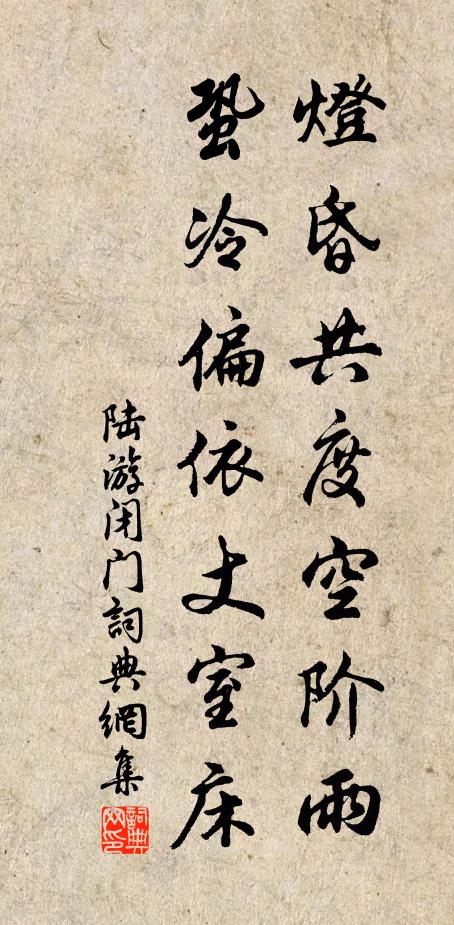 燈昏共度空阶雨
蛩冷偏依丈室床
陆游闭门詞典網集
詞典網印